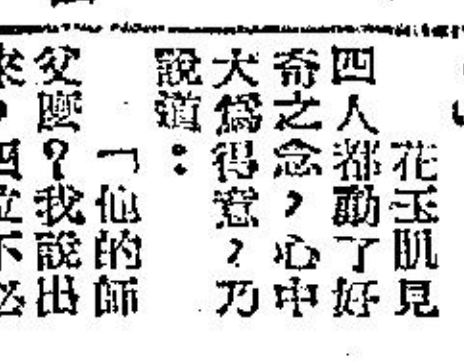 花玉肌見
四人都動了好
奇之念，心中
大為得意，乃
說道：
「他的師
父麼？我說出
四位不必